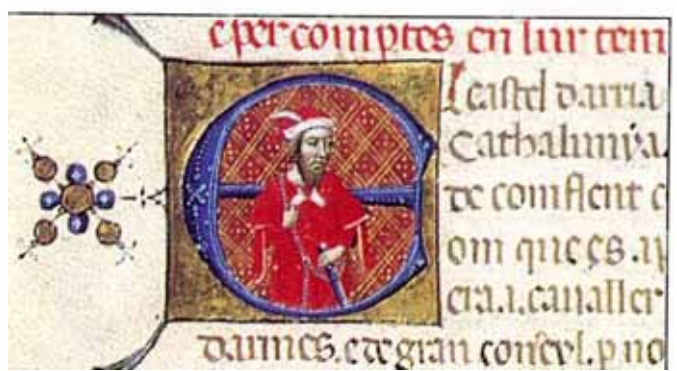 e per comptes en lur tem
El castel darria
Cathalunya.
de comflent e
om que es .ap
era .i. caualler
darmes. e de gran conseyl. p no